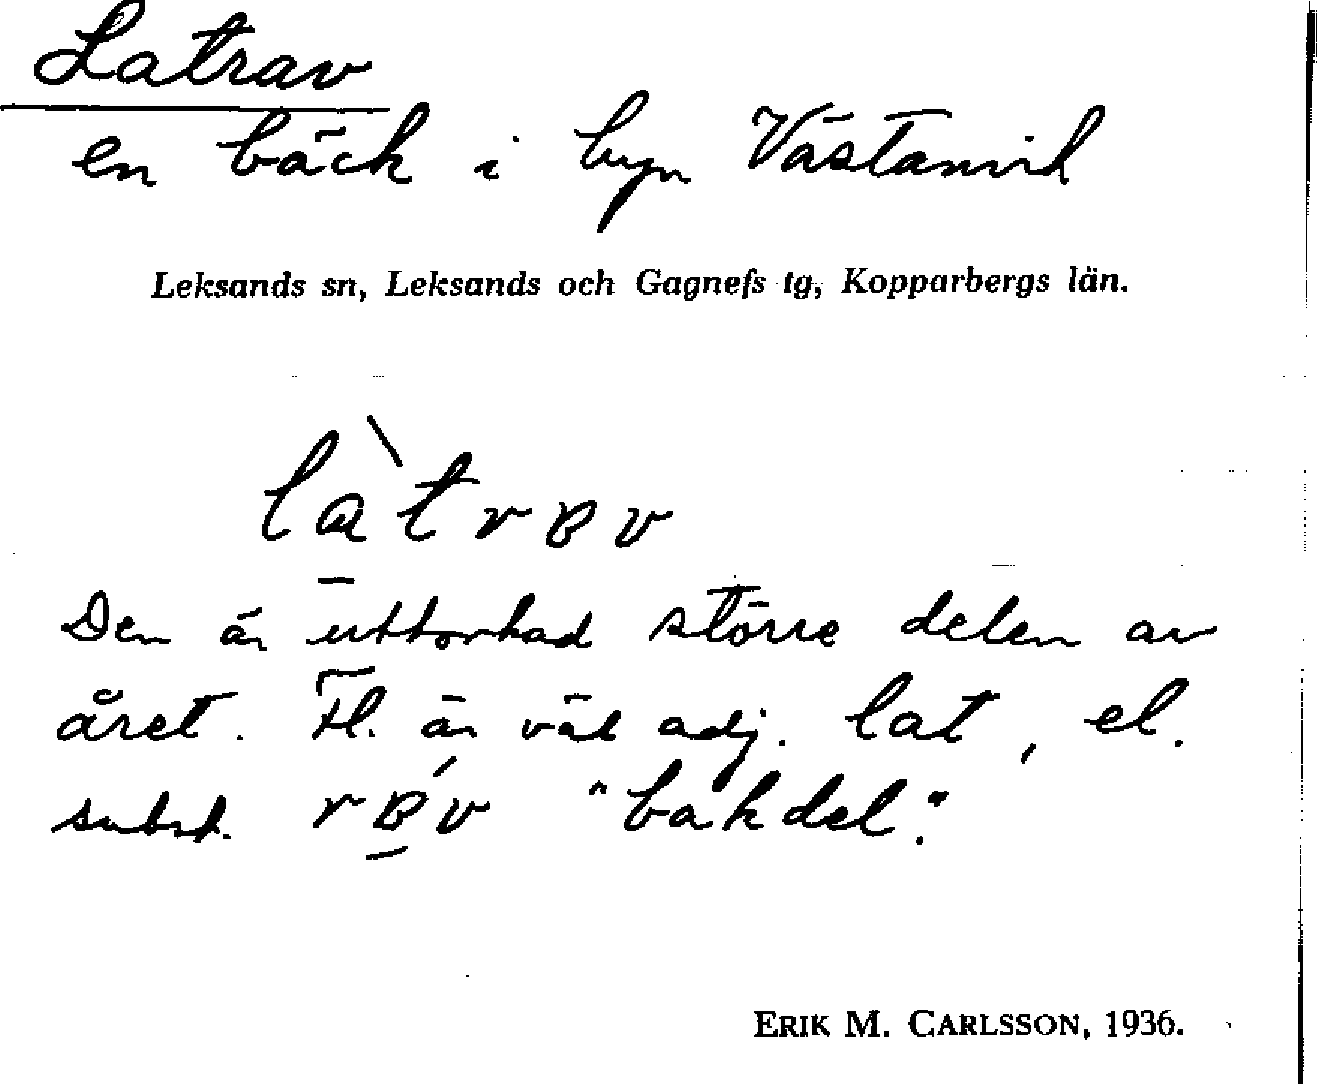 Latrav
en bäck i byn Västanvik
Leksands sn, Leksands och Gagnefs tg, Kopparbergs län.
làtrɐv
Den är uttorkad större delen av
året. Fl. är väl adj. lat, el.
subst. rɐ́v "bakdel".
ERIK M. CARLSSON, 1936.